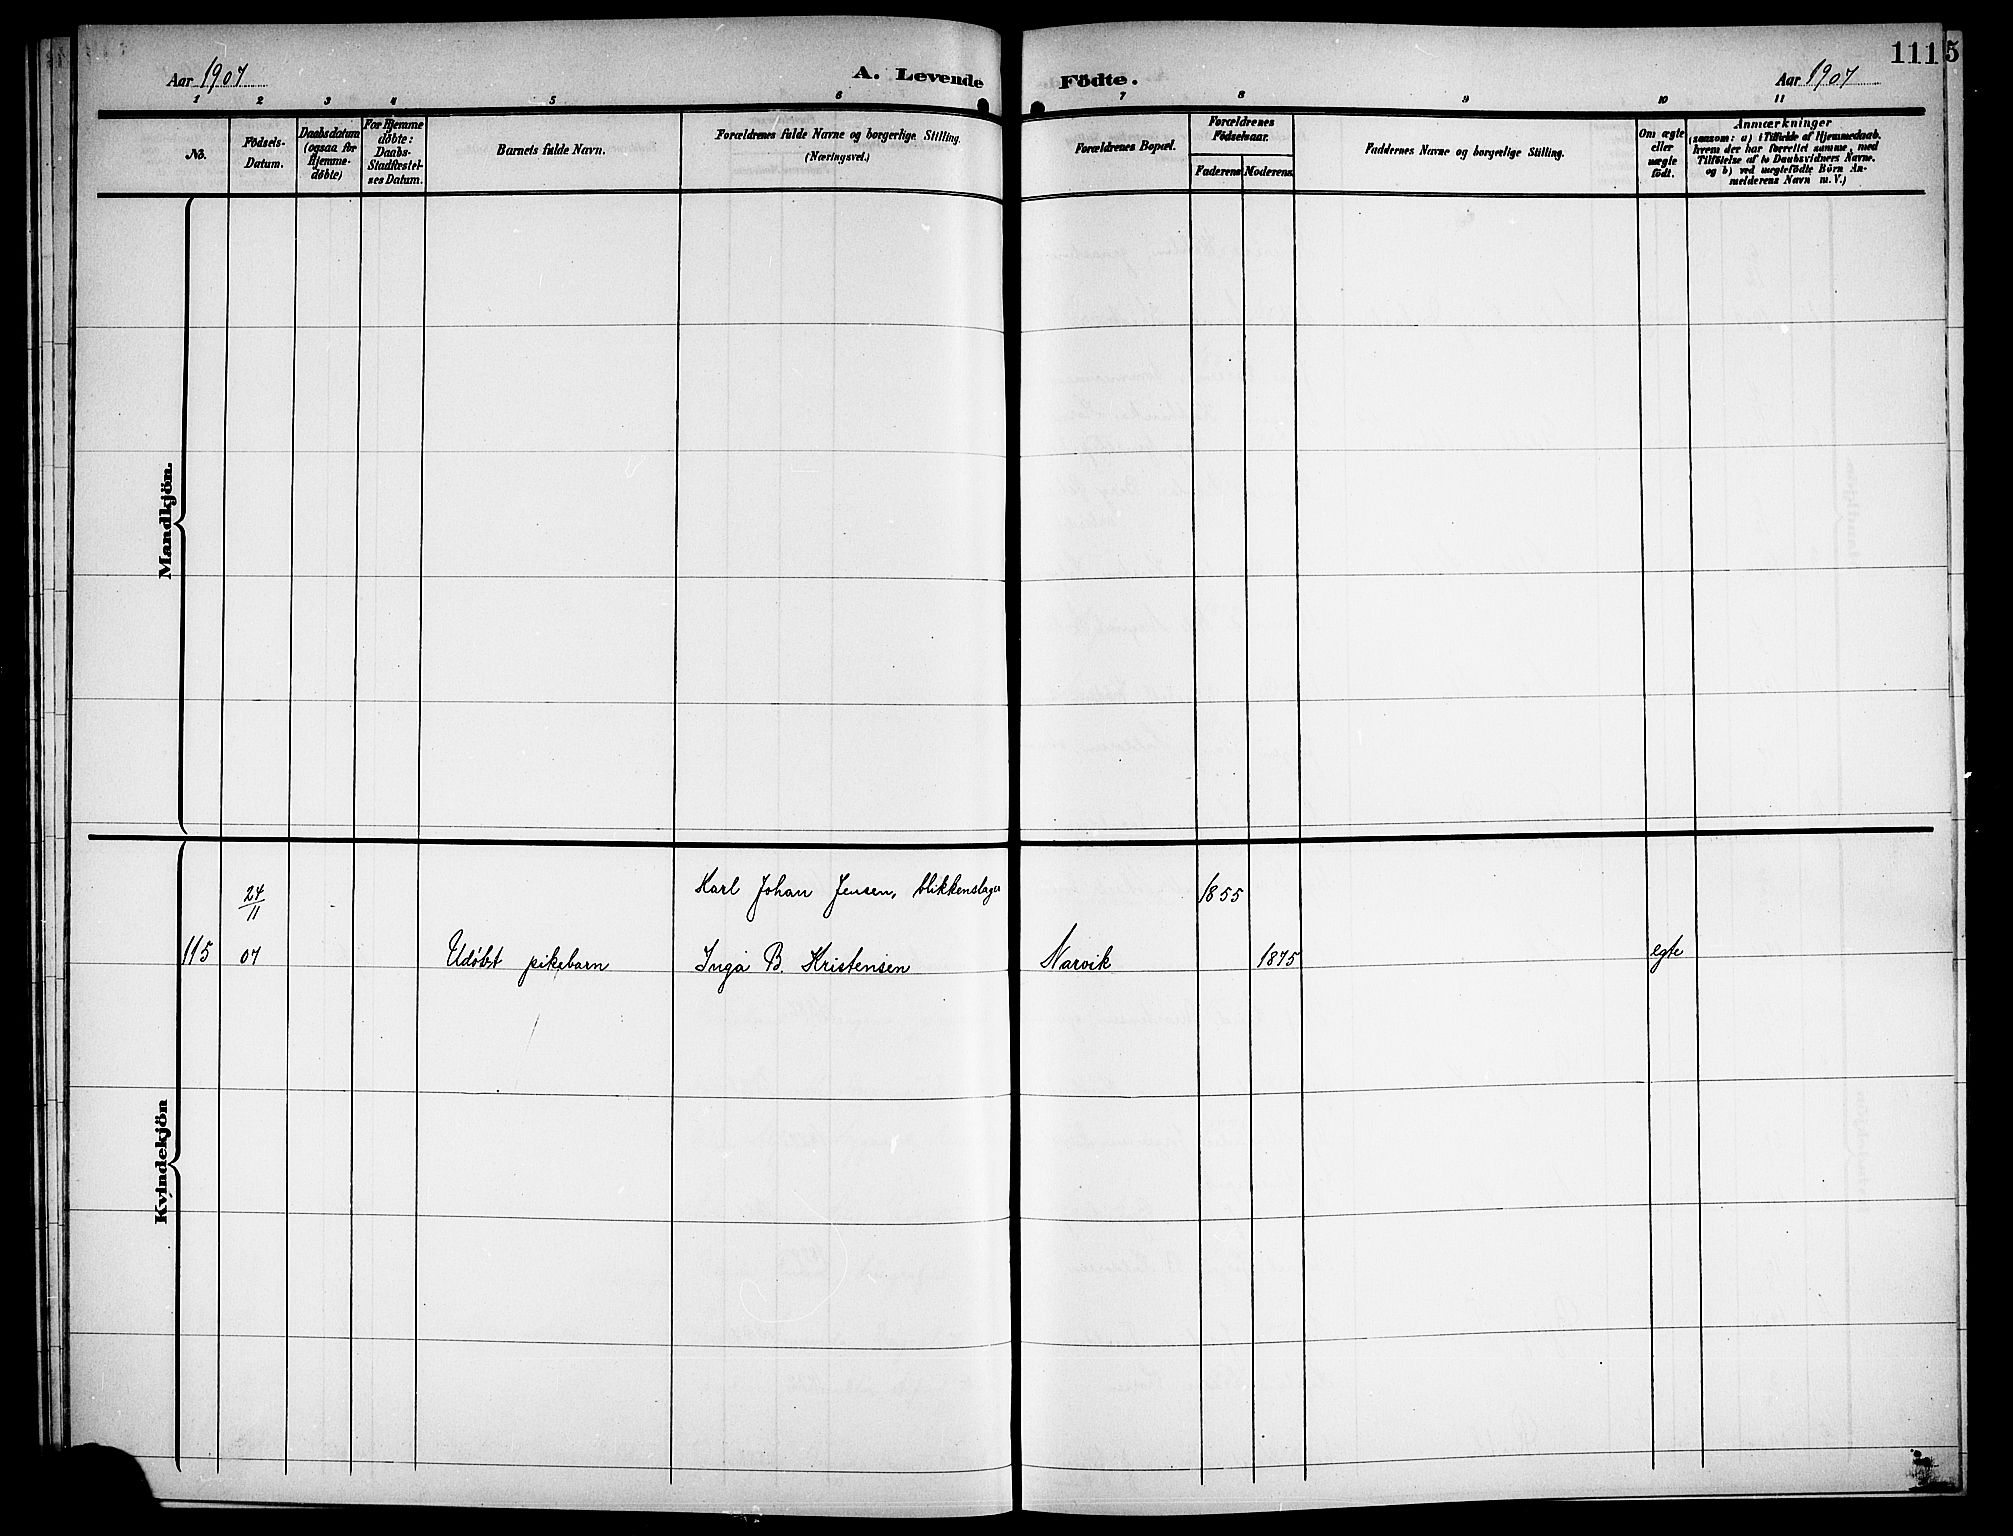 Aar 1907
A. Levende Födte.
Aar 1907
111
5
1 2 3 4 5 6 7 8 9 10 11
No.
Födsels-
Datum.
Daabsdatum
(ogsaa for
Hjemme-
døbte)
For Hjemme
døbte:
Daabs-
Stadfæstel-
ses Datum.
Barnets fulde Navn.
Forældrenes fulde Navne og borgerlige Stilling.
(Næringsvei.)
Forældrenes Bopæl.
Forældrenes
Födselsaar.
Faderens
Moderens
Faddernes Navne og borgerlige Stilling.
Om ægte
eller
uægte
födt.
Anmærkninger
(saasom: a) i Tilfælde af Hjemmedaab,
hvem der har forrettet samme, med
Tilföielse af to Daabsvidners Navne.
og b) ved uægtefödte Börn An-
melderens Navn m. V.)
Mandkjön.
Kvindekjön
24/11 Karl Johan Jensen, blikkenslager 1855
115 07 Udöbt pikebarn Inga B. Kristensen Narvik 1875 egte